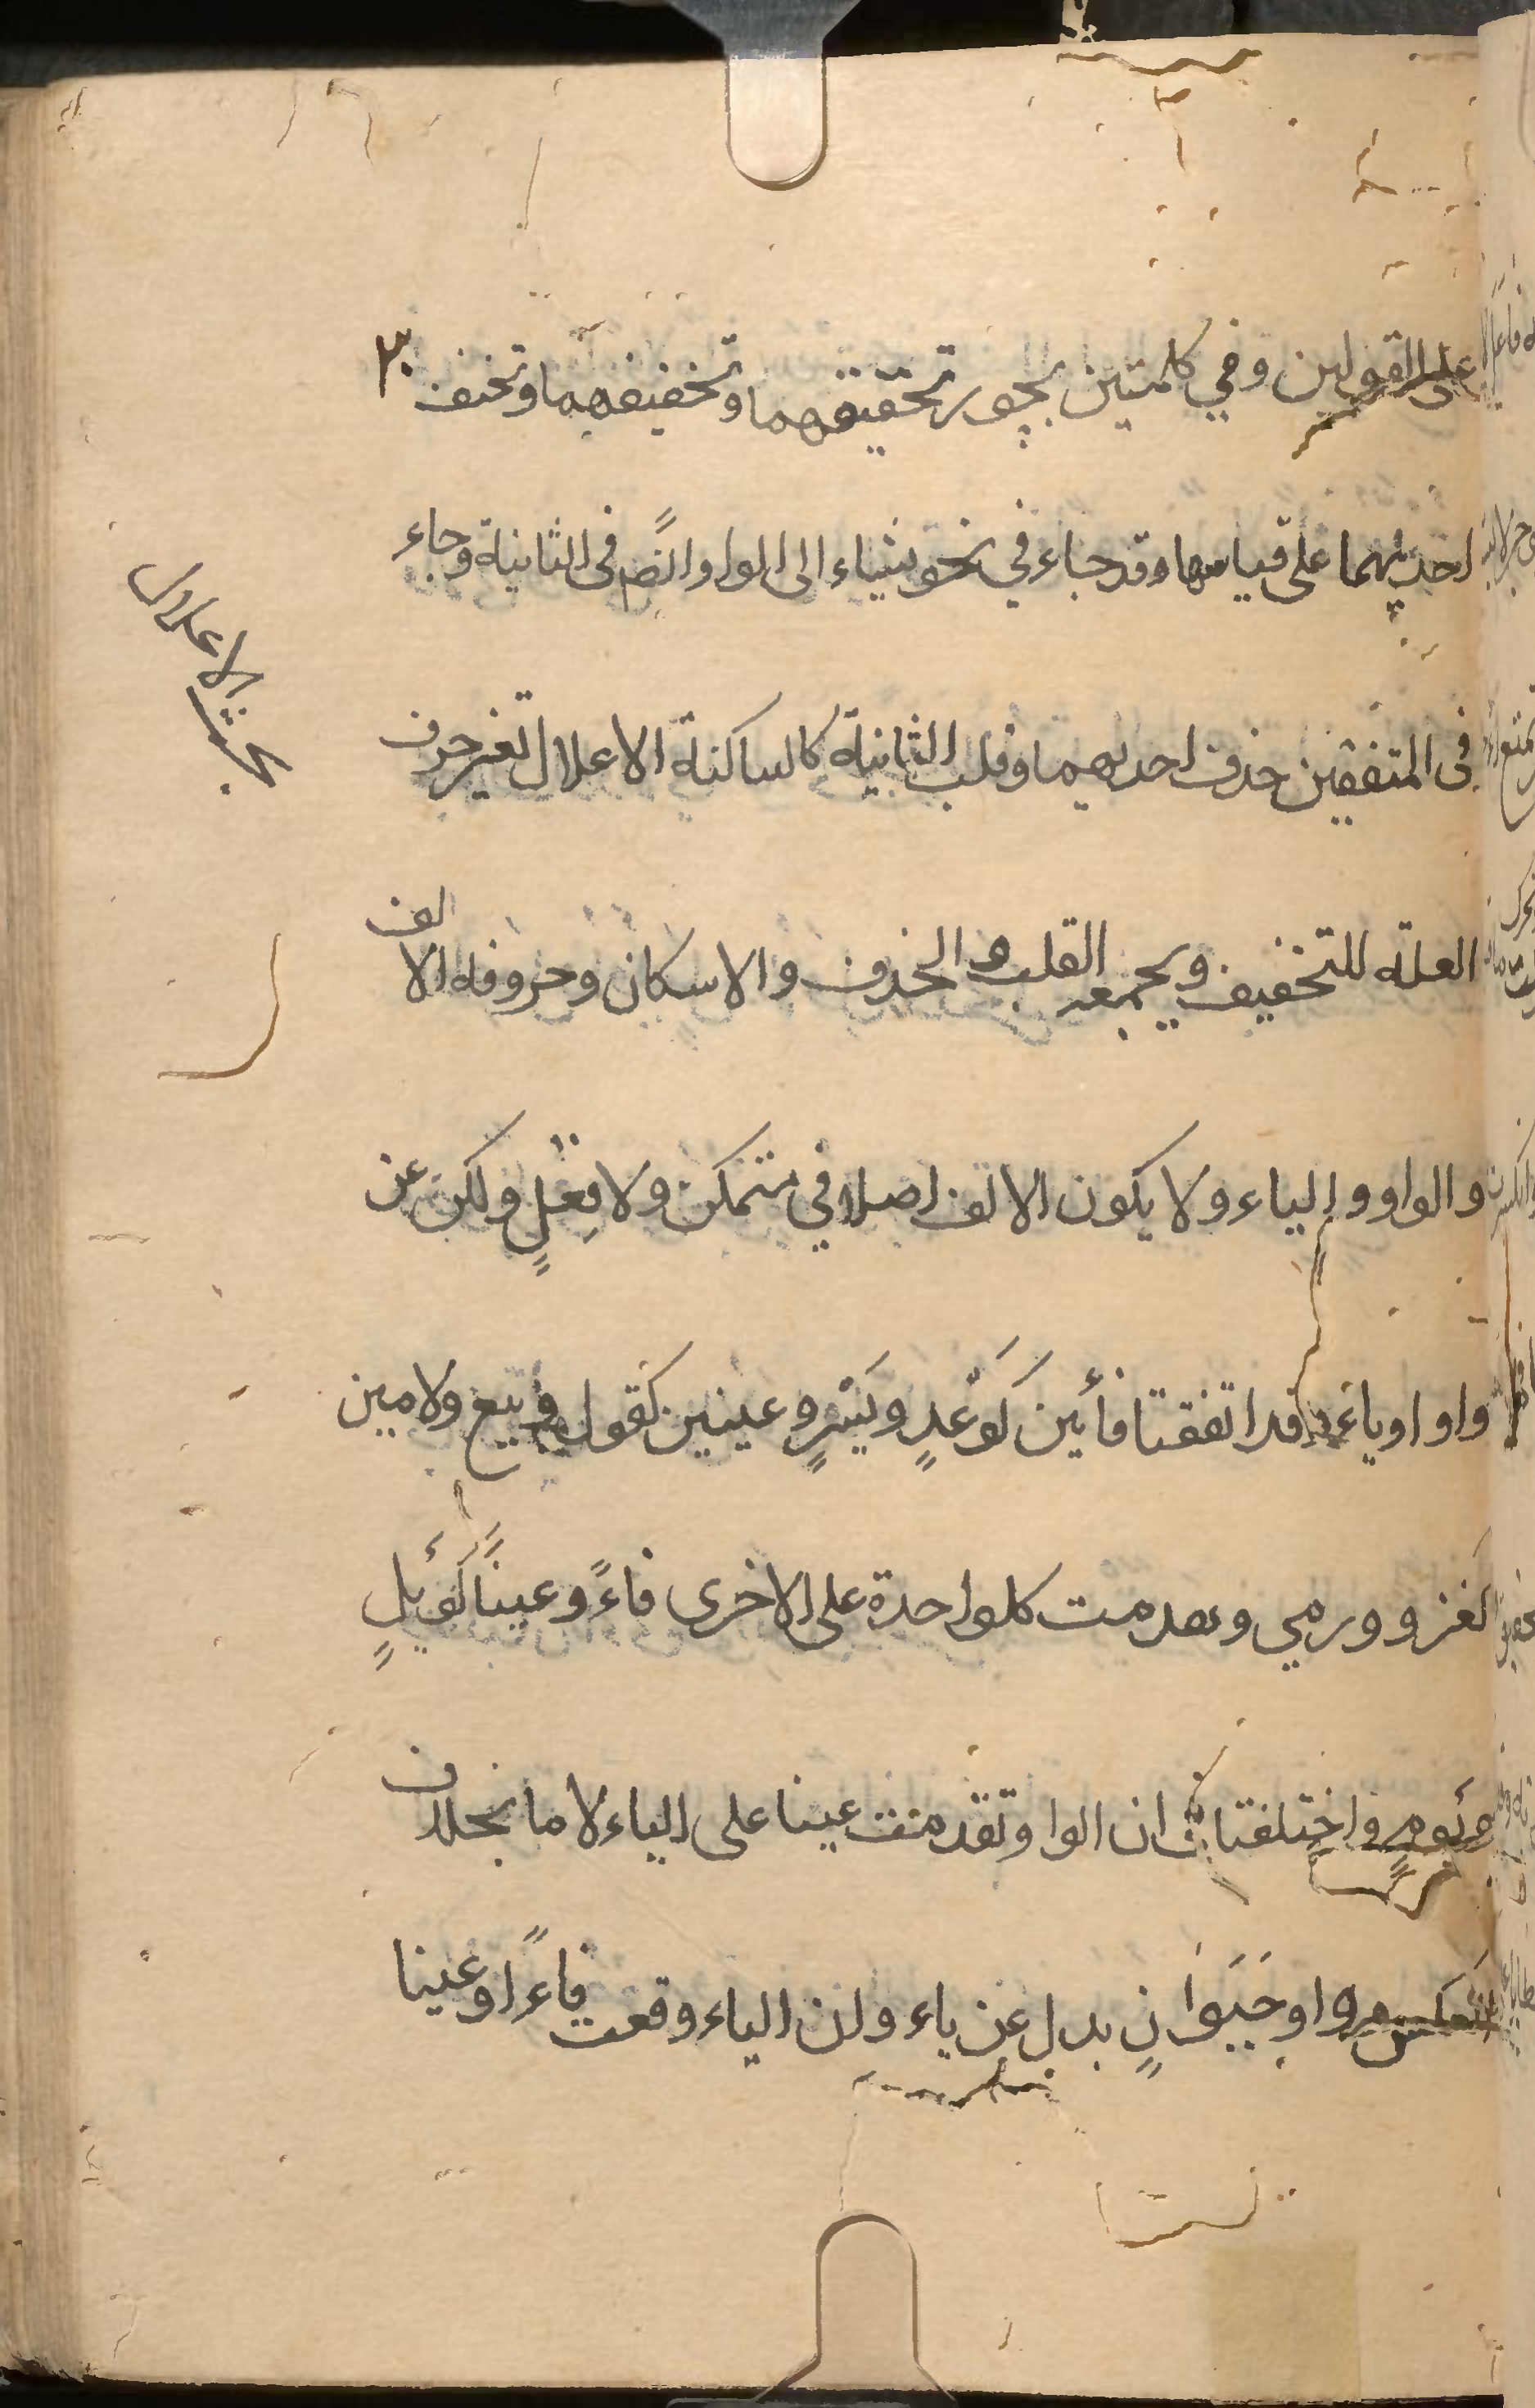 على القولين وفي كلمتين يجوز تحقيقهما وتخفيفهما وتخفف
احديهما على قياسها وقد جاء في نحو يشاء الى الواو ايضً في الثانية وجاء
في المتفقين حذف احديهما وقلب الثانية كالساكنة الاعلال تغير حرف
العلة للتخفيف ويجمعه القلب و الحذف والاسكان وحروفه الالف
والواو والياء ولا يكون الالف اصلا في متمكن ولا فِعلٍ ولكن عن
واو او ياء وقد اتفقتا فأين كَوَعْدٍ ويَسْرٍ وعينين كقول وبيع ولامين
كغزو ورمي وتقدمت كل واحدة على الاخرى فاءً وعينًا كَوَيْلٍ
ويَومٍ واختلفتا في ان الواو تقدمت عينا على الياء لاما بخلاف
العكس وواو حَيَوَانٍ بدل عن ياء وان الياء وقعت فاءً او عينا
بحث الاعلال